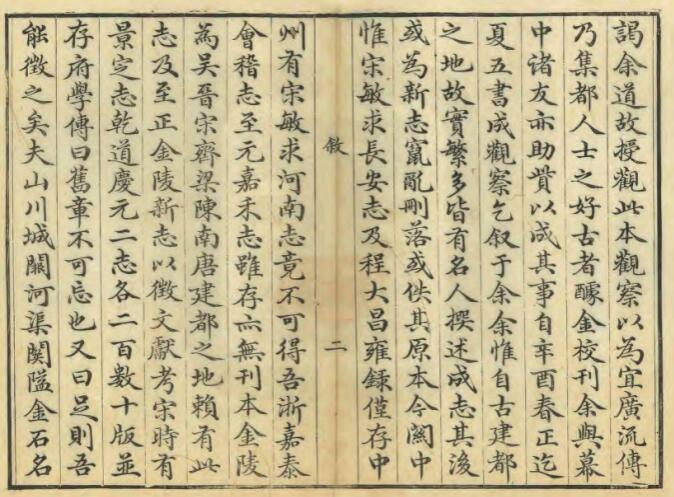 謁余道故授觀此本觀察以為宜廣流傳
乃集都人士之好古者醵金校刊余與幕
中诸友亦助貲以成其事自辛酉春正迄
夏五書成觀察乞叙于余余惟自古建都
之地故實繁多皆有名人撰述成志其後
或為新志竄亂刪落或佚其原本今關中
惟宋敏求長安志及程大昌雍錄僅存中
敘
二
州有宋敏求河南志竟不可得吾浙嘉泰
會稽志至元嘉禾志雖存亦無刊本金陵
為吴晉宋齊梁陳南唐建都之地賴有此
志及至正金陵新志以徵文獻考宋時有
景定志乾道慶元二志各二百數十版並
存府學傳曰舊章不可忘也又曰足則吾
能徵之矣夫山川城闕河渠関隘金石名